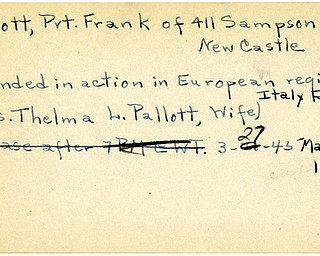 ott, Pvt. Frank of 411 Sampson
New Castle
nded in action in European regi
Italy
s. Thelma L. Pallott, Wife)
ase after 7 PM EWT. 3-27-45 Ma
1